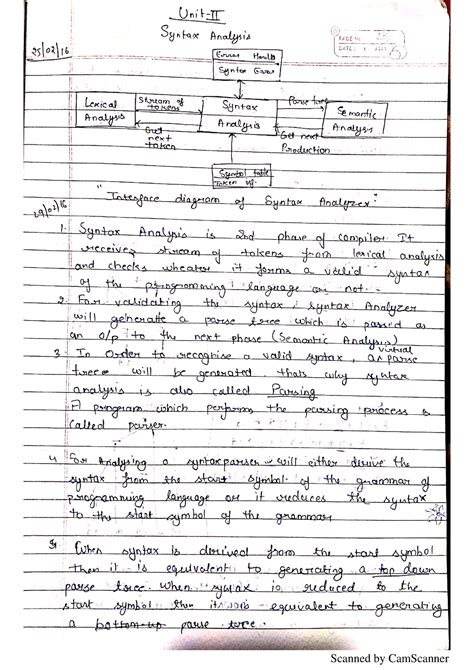 Unit-II
Syntax Analysis
25/02/16
PAGE NO.
DATE: / /
Error Handle
Syntax Error
Lexical
Analysis
Stream of
tokens
Syntax
Analysis
Parse tree
Semantic
Analysis
Get
next
token
Get next
Production
Symbol table
Token
"Interface diagram of Syntax Analyzer"
1. Syntax Analysis is 2nd phase of compiler. It
receives stream of tokens from lexical analysis
and checks wheater it forms a valid syntax
of the programming language or not.
2. For validating the syntax, syntax Analyzer
will generatte a parse tree which is passed as
an o/p to the next phase (Semantic Analysis)
3. In Order to recognise a valid syntax, a virtual parse
tree will be generated, thats why syntax
analysis is also called Parsing
A program which performs the parsing process is
called parser.
4. For Analysing a syntax parser will either derive the
syntax from the start symbol of the grammar of
programming language or it reduces the syntax
to the start symbol of the grammar
5. When syntax is derived from the start symbol
then it is equivalent to generating a top down
parse tree. When syntax is reduced to the
start symbol then it is equivalent to generating
a bottom-up parse tree.
Scanned by CamScanner